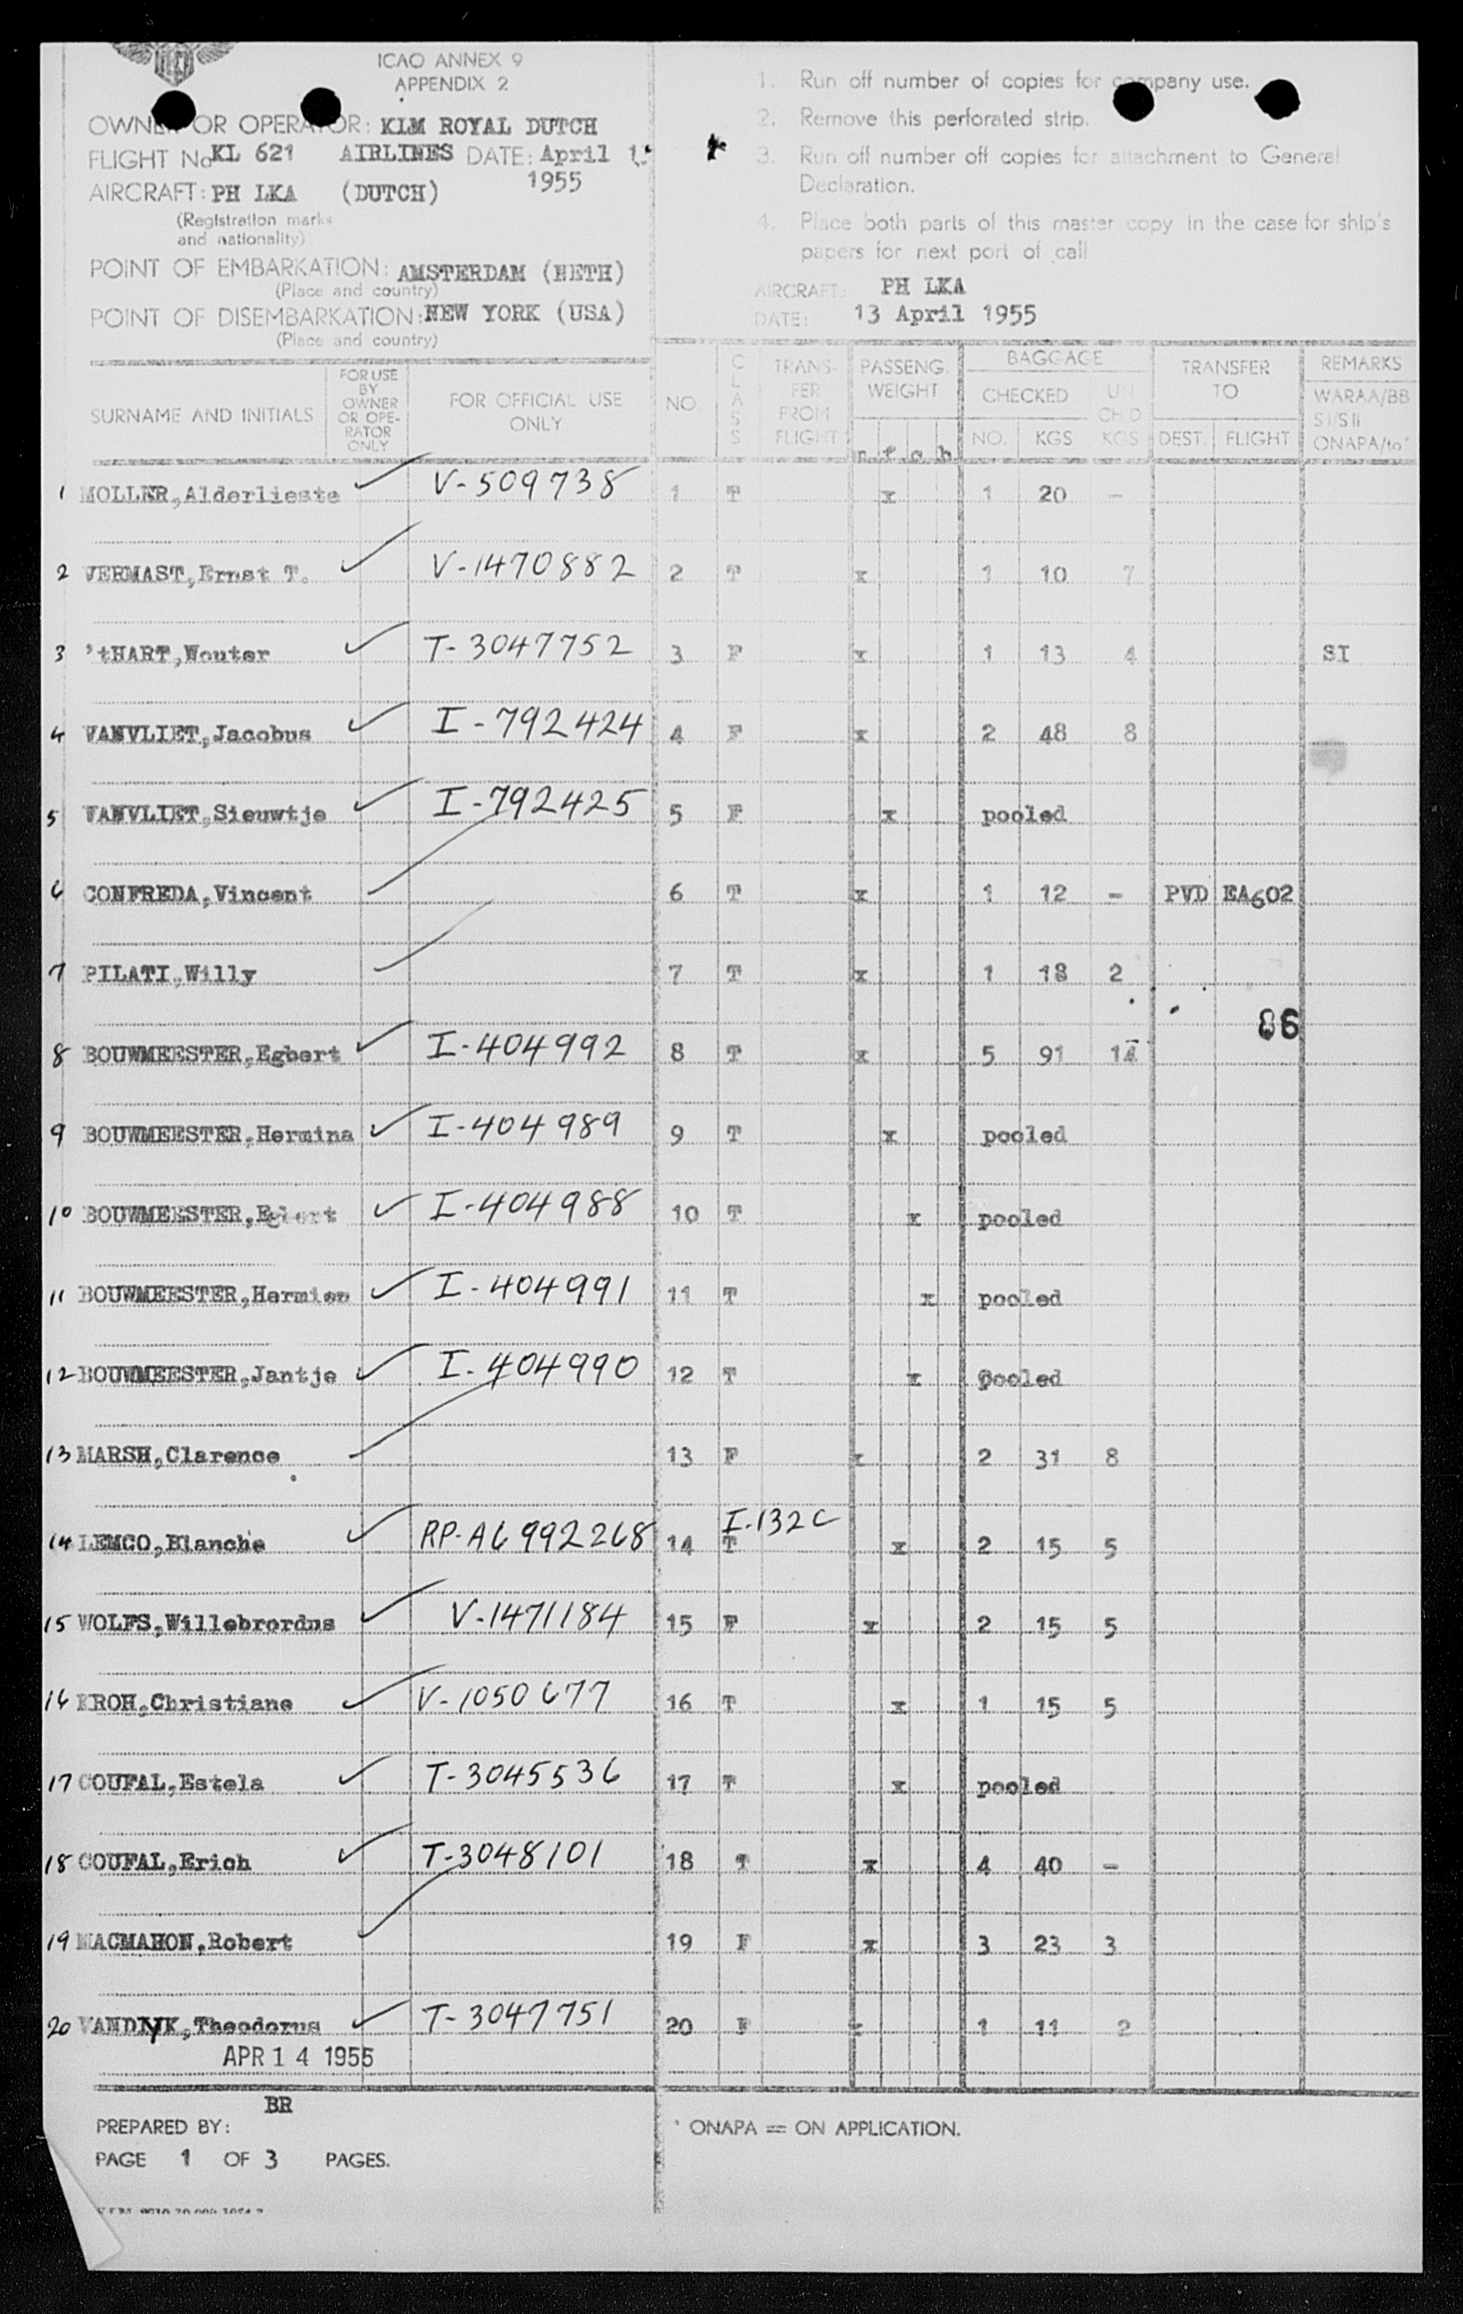 ICAO ANNEX 9
APPENDIX 2
OWNER OR OPERATOR: KLM ROYAL DUTCH
FLIGHT No KL 621 AIRLINES DATE: April
1955
AIRCRAFT: PH LKA (DUTCH)
(Registration marks
and nationality)
POINT OF EMBARKATION: AMSTERDAM (NETH)
(Place and country)
POINT OF DISEMBARKATION: NEW YORK (USA)
(Place and country)
1. Run off number of copies for company use.
2. Remove this perforated strip.
3. Run off number off copies for attachment to General
Declaration.
4. Place both parts of this master copy in the case for ship's
papers for next port of call
AIRCRAFT: PH LKA
DATE: 13 April 1955
SURNAME AND INITIALS
FOR USE
BY
OWNER
OR OPE-
RATOR
ONLY
FOR OFFICIAL USE
ONLY
NO
CLASS
TRANS-
FER
FROM
FLIGHT
PASSENG.
WEIGHT
m f c b
BAGGAGE
CHECKED
NO. KGS
UN
CH'D
KGS
TRANSFER
TO
DEST. FLIGHT
REMARKS
WARAA/BB
SI/SII
ONAPA/to*
1 MOLLER, Alderlieste V-509738 1 T x 1 20 -
2 VERMAST, Ernst T. V-1470882 2 T x 1 10 7
3 'tHART, Wouter T-3047752 3 F x 1 13 4 SI
4 VANVLIET, Jacobus I-792424 4 F x 2 48 8
5 VANVLIET, Sieuwtje I-792425 5 F x pooled
6 CONFREDA, Vincent 6 T x 1 12 - PVD EA602
7 PILATI, Willy 7 T x 1 18 2
86
8 BOUWMEESTER, Egbert I-404992 8 T x 5 91 14
9 BOUWMEESTER, Hermina I-404989 9 T x pooled
10 BOUWMEESTER, Egbert I-404988 10 T x pooled
11 BOUWMEESTER, Hermien I-404991 11 T x pooled
12 BOUWMEESTER, Jantje I-404990 12 T x pooled
13 MARSH, Clarence 13 F x 2 31 8
I-132C
14 LEMCO, Blanche RP-A6992268 14 T x 2 15 5
15 WOLFS, Willebrordus V-1471184 15 F x 2 15 5
16 KROH, Christiane V-1050677 16 T x 1 15 5
17 COUFAL, Estela T-3045536 17 T x pooled
18 COUFAL, Erich T-3048101 18 T x 4 40 -
19 MACMAHON, Robert 19 F x 3 23 3
20 VANDYK, Theodorus T-3047751 20 F x 1 11 2
APR 14 1955
BR
PREPARED BY:
PAGE 1 OF 3 PAGES.
* ONAPA = ON APPLICATION.